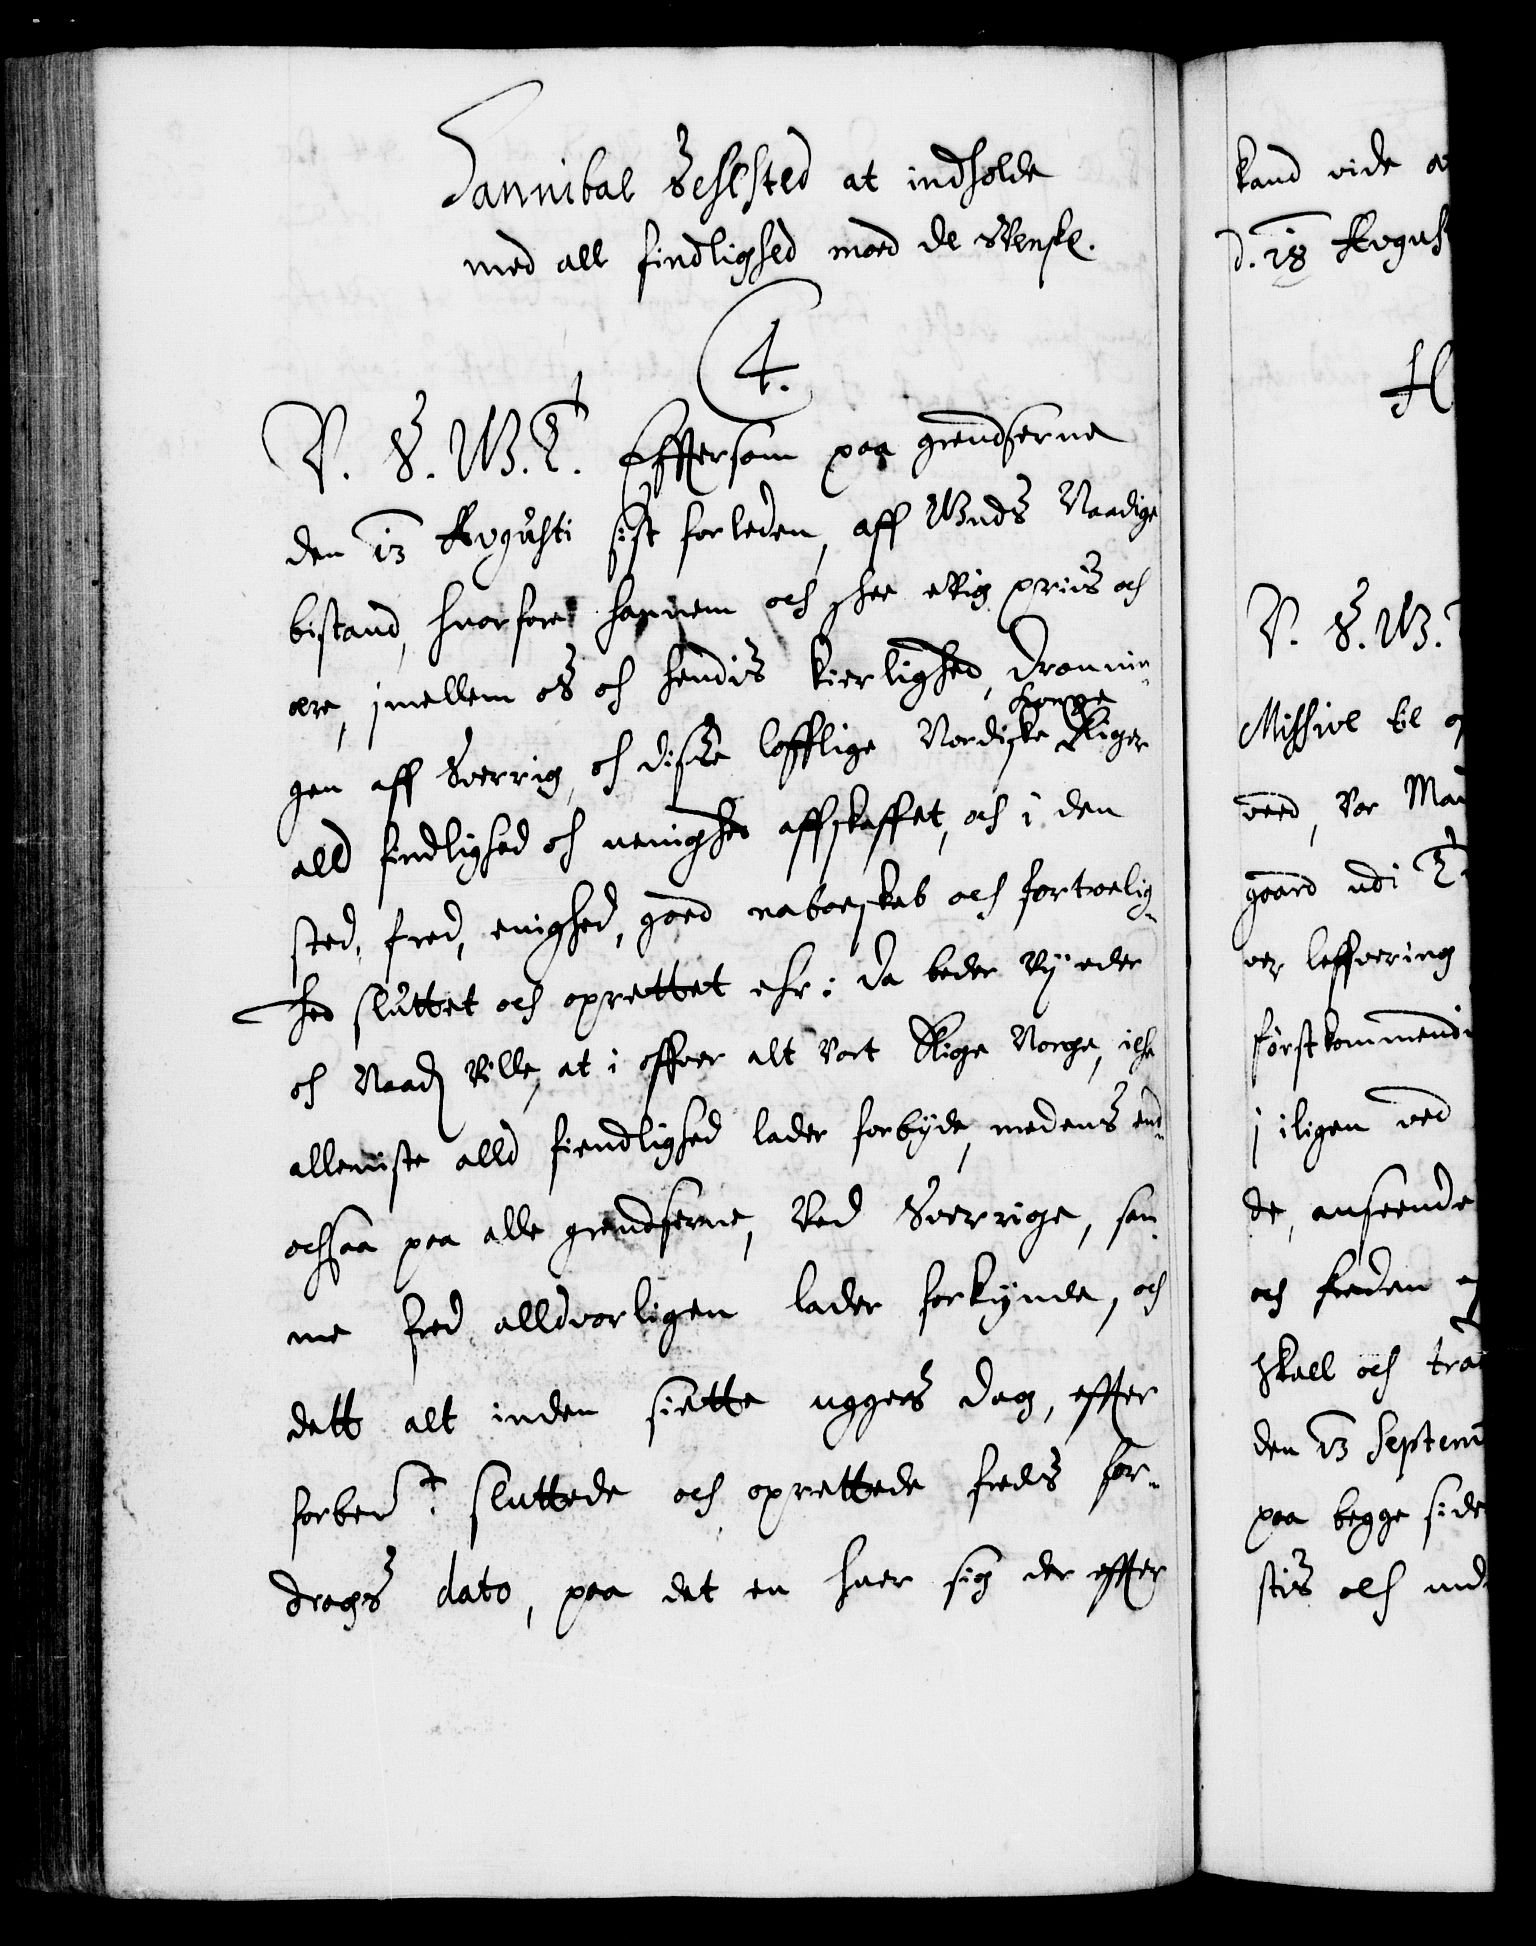 Hannibal Sehsted at indholde
med all findlighed moed de Svenske.
4.
V. S. W. T. Efftersom paa grendserne
den 13 Avgusti sist forleden, aff Guds Naadige
bistand, hvorfore hannem och shee evig priis och
ære, jmellem os och hendis kierlighed, Dronnin-
gen aff Sverrig, och disse lofflige Nordiske Kroner Riger
alld findlighed och uenighed affskaffet, och i den
sted, fred, enighed, goed naboeskab och fortroelig-
hed sluttet och oprettet ehr; da beder Vy eder
och Naadj Ville, at i offver alt Vort Rige Norge, icke
alleniste alld fiendlighed lader forbyde, medens end-
ochsaa paa alle grendserne, Ved Sverrige, sam-
me fred alldvorligen lader forkynde, och
dett alt inden siette uggers dag, effter
forber.t sluttede och oprettede freds for-
drags dato, paa det en hver sig der effter
kand vide
d. 18 August
V. S. W.
Missive til
veed, Vor
gaard udi
leffvering
førstkommend
j iligen ved
de, anseende
och freden
skell och
den 13 Septem
paa begge side
stis och